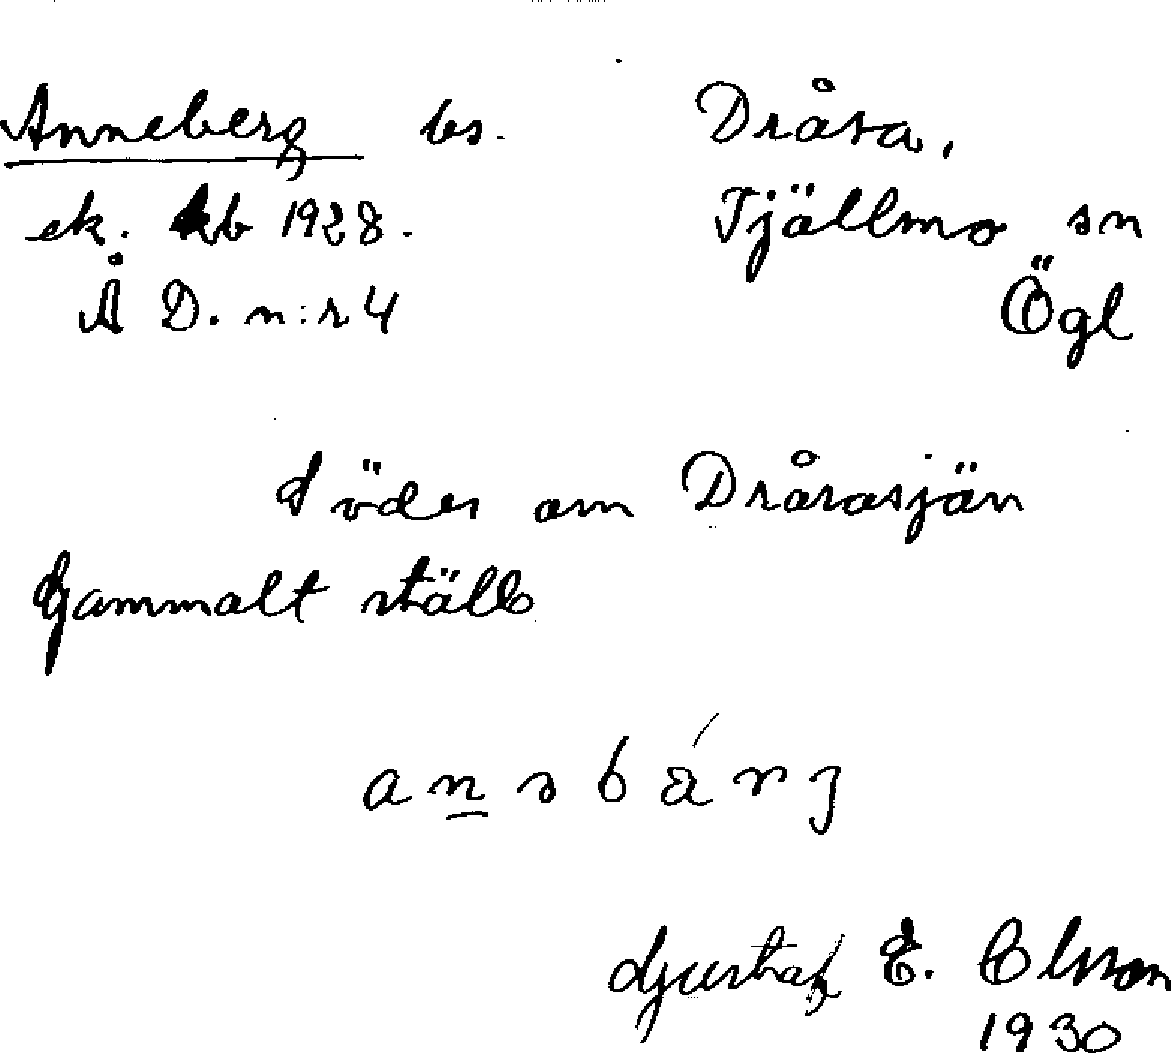 Anneberg bs. Dråra,
ek. kb 1928. Tjällmo sn
Å D. n:r 4 Ögl
Söder om Drårasjön
Gammalt ställe
a n̲ ə b ä́ r j
Gustaf E. Olsson
1930